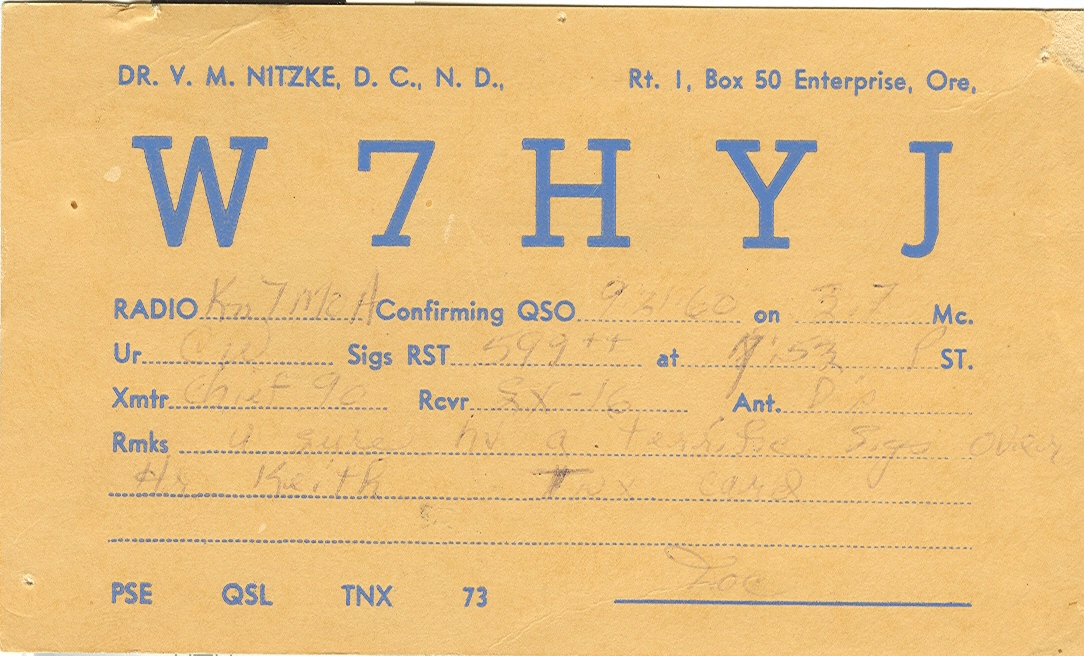 DR. V. M. NITZKE, D. C., N. D., Rt. 1, Box 50 Enterprise, Ore.
W 7 H Y J
RADIO Kn7MZA Confirming QSO 60 on 3.7 Mc.
Ur CW Sigs RST 599++ at :53 P ST.
Xmtr Chief 90 Rcvr SX-16 Ant. Dip
Rmks U sure hv a terrific sigs over
Hr Keith Tnx card
Doc
PSE QSL TNX 73